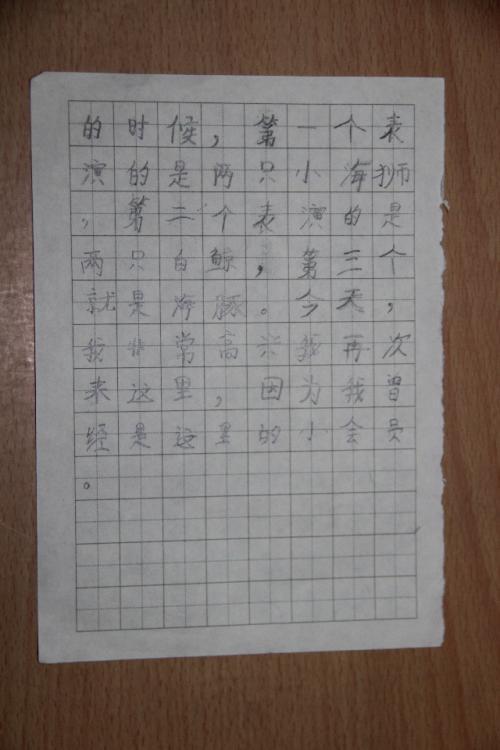 的时候，第一个表
演的是两只小海狮
，第二个表演的是
两只白鲸，第三个
就是海豚。今天，
我非常高兴我再次
来这里，因为我曾
经是这里的小会员
。